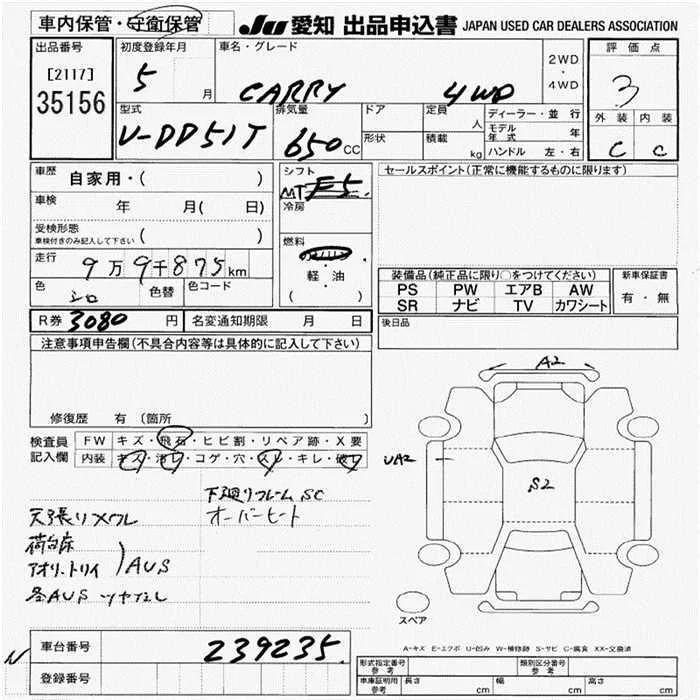 車内保管・守衛保管
JU 愛知 出品申込書 JAPAN USED CAR DEALERS ASSOCIATION
出品番号
[2117]
35156
初度登録年月
5 月
車名・グレード
CARRY 4WD
2WD
・
4WD
評価点
3
外装 内装
C C
型式
V-DD51T
排気量
650 CC
ドア
形状
定員 人
積載 kg
ディーラー・並行
モデル年式 年
ハンドル 左・右
車歴
自家用・( )
車検 年 月( 日)
受検形態
車検付きのみ記入して下さい ( )
走行
9万9千875km
色 シロ 色替
色コード
シフト
MT F5.
冷房
燃料
軽・油
( )
セールスポイント(正常に機能するものに限ります)
装備品(純正品に限り○をつけてください)
PS PW エアB AW
SR ナビ TV カワシート
新車保証書
有・無
R券 3080 円
名変通知期限 月 日
後日品
注意事項申告欄(不具合内容等は具体的に記入して下さい)
修復歴 有 〔箇所 〕
検査員
記入欄
FW キズ・飛石・ヒビ割・リペア跡・X要
内装 キズ・汚レ・コゲ・穴・スレ・キレ・破レ
下廻りフレームSC
オーバーヒート
天張りメクレ
荷台床
アオリ.トリイ )AUS
各AUS ツヤなし
A2
UA2
S2
スペア
A-キズ E-エクボ U-凹み W-補修跡 S-サビ C-腐食 XX-交換済
車台番号
239235.
登録番号
型式指定番号
参考
類別区分番号
参考
車庫証明用
参考
長さ cm 幅 cm 高さ cm